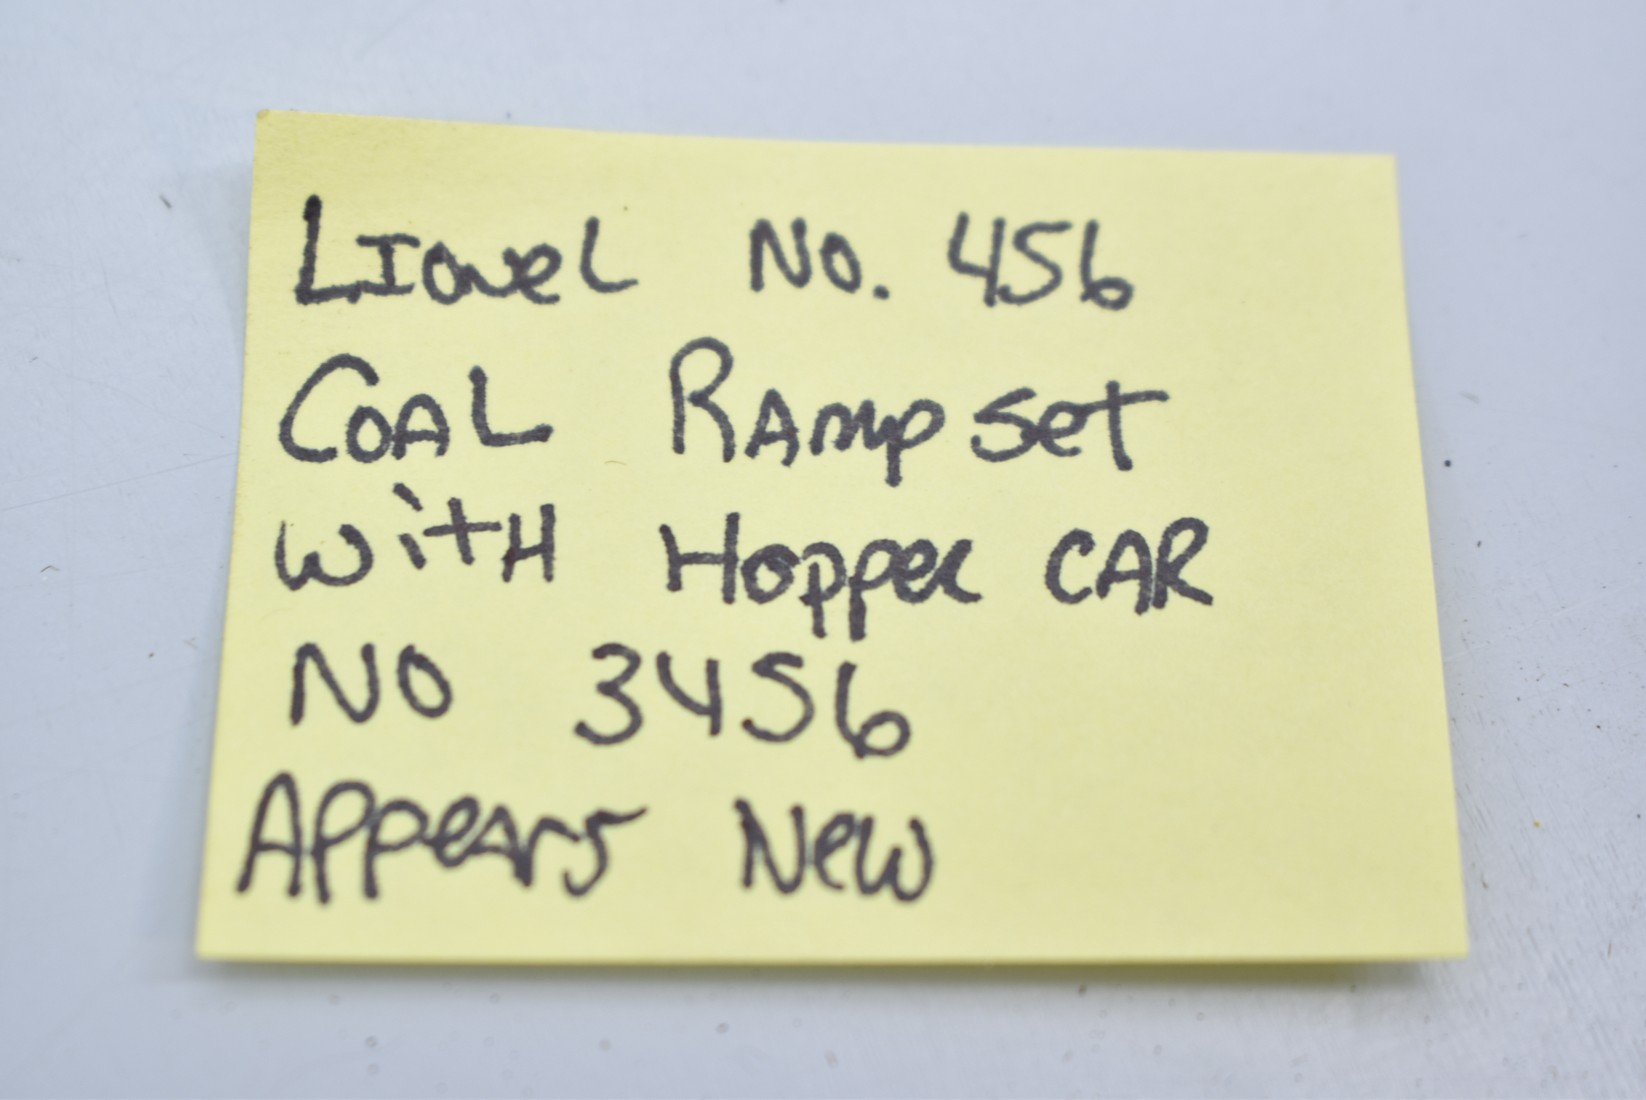 Lionel No. 456
Coal Ramp set
with Hopper CAR
NO 3456
Appears New